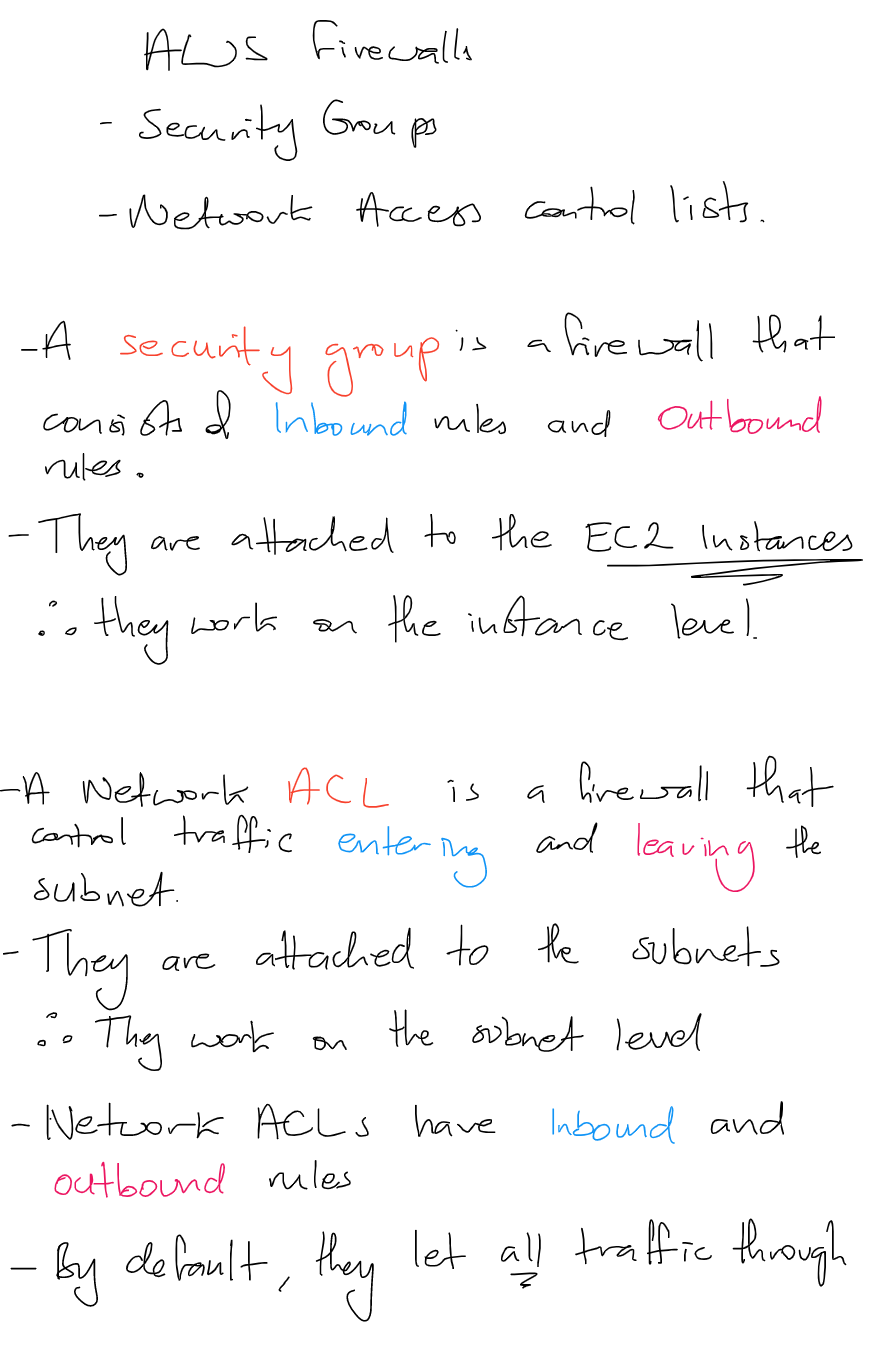 AWS Firewalls
- Security Groups
- Network Access control lists.
- A security group is a firewall that
consists of Inbound rules and Outbound
rules.
- They are attached to the EC2 Instances
∴ they work on the instance level.
- A Network ACL is a firewall that
control traffic entering and leaving the
subnet.
- They are attached to the subnets
∴ They work on the subnet level
- Network ACLs have Inbound and
outbound rules
- By default, they let all traffic through